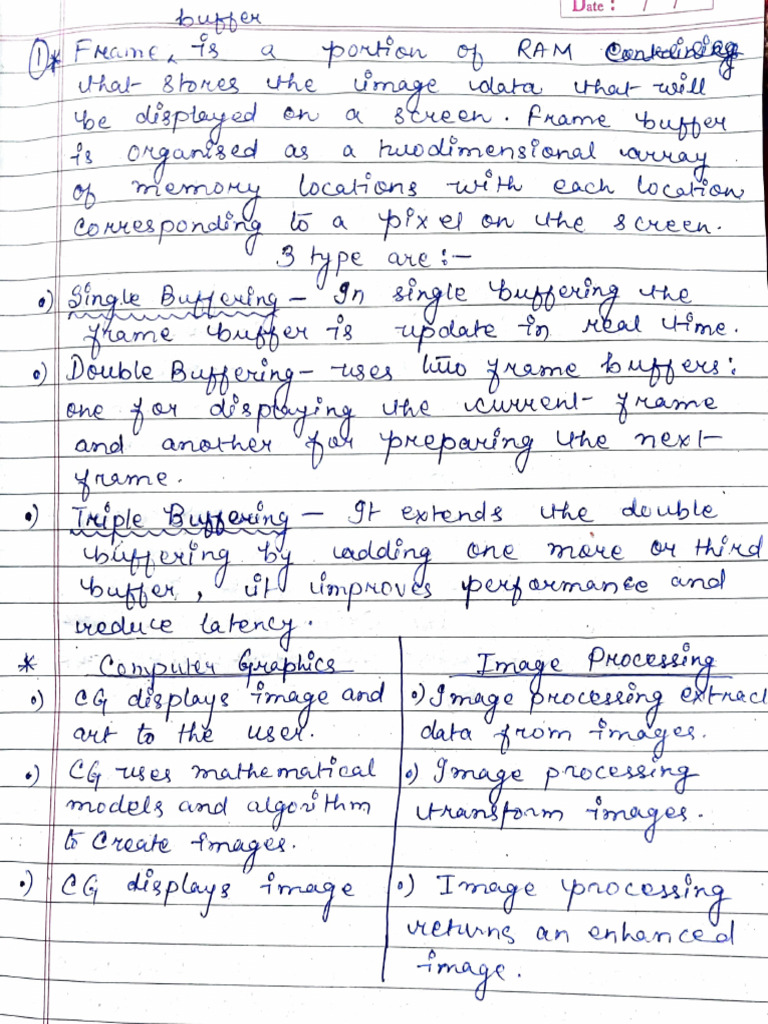 Date : / /
buffer
① * Frame ‸ is a portion of RAM
that stores the image data that will
be displayed on a screen. Frame buffer
is organised as a twodimensional array
of memory locations with each location
corresponding to a pixel on the screen.
3 type are :-
•) Single Buffering - In single buffering the
frame buffer is update in real time.
•) Double Buffering - uses two frame buffers:
one for displaying the current frame
and another for preparing the next
frame.
•) Triple Buffering - It extends the double
buffering by adding one more or third
buffer, it improves performance and
reduce latency.
* Computer Graphics
•) CG displays image and
art to the user.
•) CG uses mathematical
models and algorithm
to create images.
•) CG displays image
Image Processing
•) Image processing extract
data from images.
•) Image processing
transform images.
•) Image processing
returns an enhanced
image.